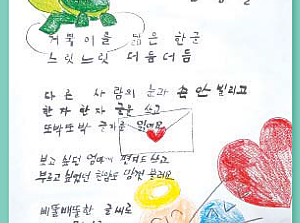 거북이를 닮은 한글
느릿느릿 더듬더듬
다른 사람의 눈과 손 안 빌리고
한자 한자 글을 쓰고
또박또박 글자를 읽어요
보고 싶던 엄마에 편지도 쓰고
부르고 싶었던 찬양도 맘껏 불러요
삐뚤삐뚤한 글씨로